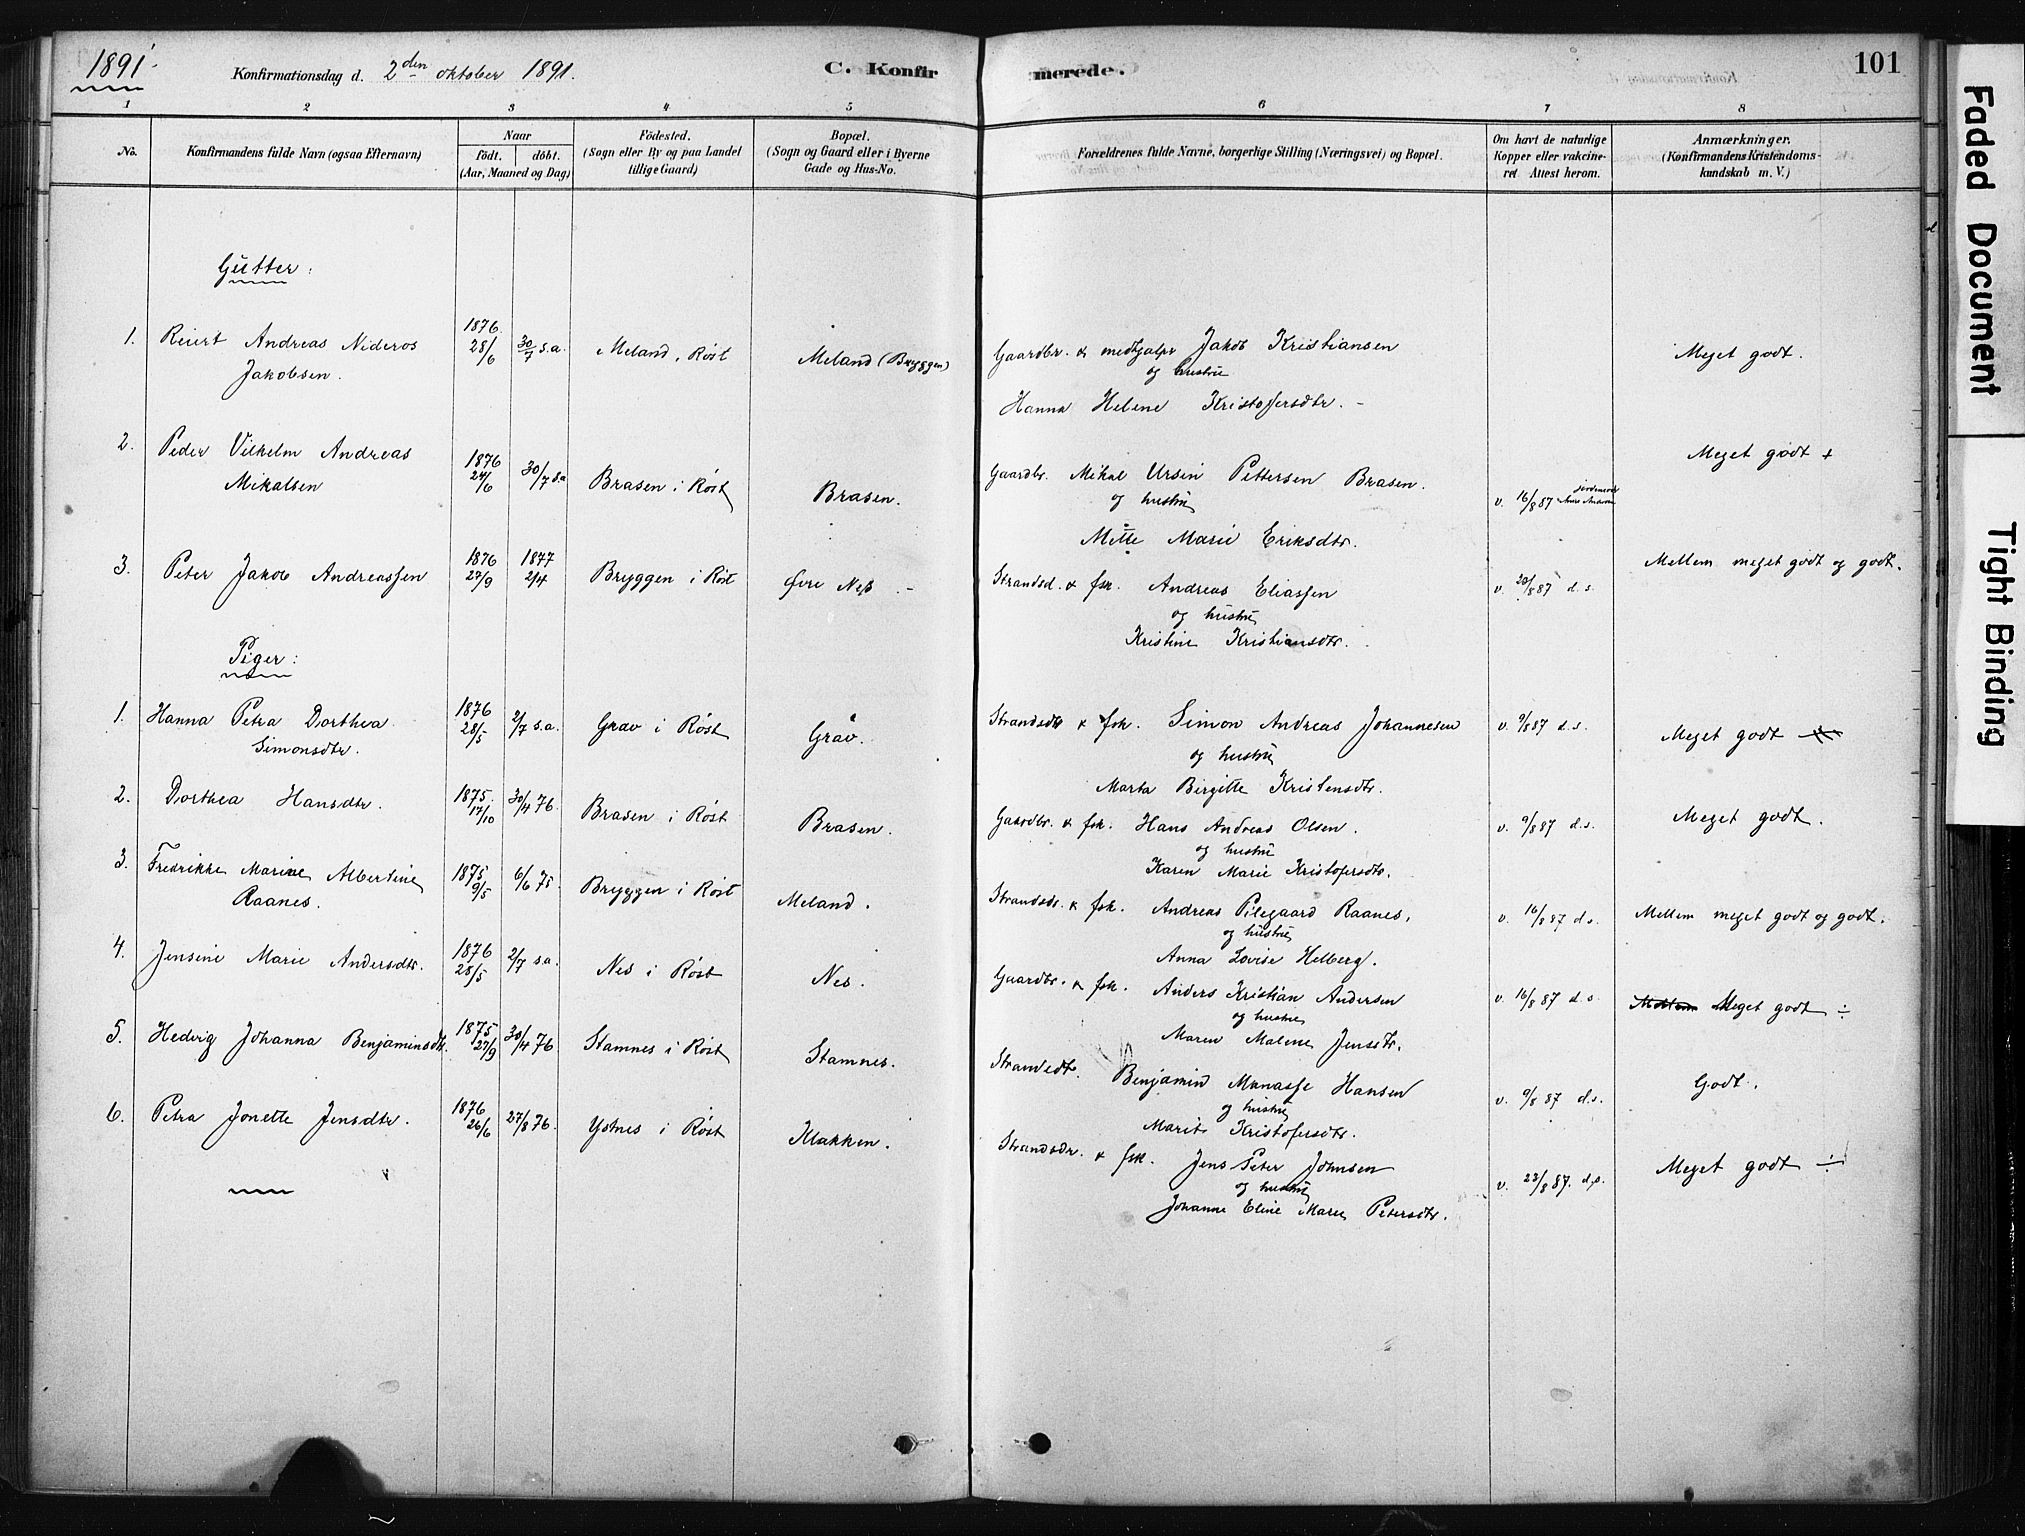 1891.
Konfirmationsdag d. 2den oktober 1891.
C. Konfirmerede.
101
1 2 3 4 5 6 7 8
No.
Konfirmandens fulde Navn (ogsaa Efternavn)
Naar
födt. döbt.
(Aar, Maaned og Dag)
Födested.
(Sogn eller By og paa Landet
tillige Gaard)
Bopæl.
(Sogn og Gaard eller i Byerne
Gade og Hus-No.
Forældrenes fulde Navne, borgerlige Stilling (Næringsvei) og Bopæl.
Om havt de naturlige
Kopper eller vakcine-
ret Attest herom.
Anmærkninger.
(Konfirmandens Kristendoms-
kundskab m. V.)
Gutter:
1. Reiert Andreas Nideros
Jakobsen.
1876. 28/6 30/7 s.a. Meland, Röst Meland (Bryggen)
Gaardbr. & medhjalpr Jakob Kristiansen
og hustru
Hanna Helene Kristofersdtr. -
Meget godt.
2. Peder Vilhelm Andreas
Mikalsen
1876 24/6 30/7 s.a Brasen i Röst Brasen.
Gaardbr. Mikal Ursin Pettersen Brasen.
og hustru
Mette Marie Eriksdtr.
v. 16/8 87
Meget godt +
3. Peter Jakob Andreassen
1876 27/9 1877 2/4 Bryggen i Röst Øvre Ness. -
Strandsd. & fsk. Andreas Eliassen
og hustru
Kristine Kristiansdtr.
v. 20/8 87 d.s.
Mellem meget godt og godt.
Piger:
1. Hanna Petra Dorthea
Simonsdtr.
1876 28/5 2/7 s.a. Grav i Røst Gråv.
Strandsdr & fsk. Simon Andreas Johannesen
og hustru
Marta Birgitte Kristensdtr.
v. 9/8 87 d.s.
Meget godt
2. Dorthea Hansdtr.
1875. 17/10 30/4 76. Brasen i Röst Brasen.
Gaardbr. & fsk. Hans Andreas Olsen.
og hustru
Karen Marie Kristofersdtr.
v. 9/8 87 d.s.
Meget godt.
3. Fredrikke Marine Albertine
Raanes.
1875. 9/5 6/6 75. Bryggen i Röst Meland.
Strandsdr. & fsk. Andreas Pilegaard Raanes.
og hustru
Anna Lovise Helberg.
v. 16/8 87 d.s.
Mellem meget godt og godt.
4. Jensine Marie Andersdtr.
1876 28/5 2/7 s.a. Nes i Røst Nes.
Gaardbr. & fsk. Anders Kristian Andersen
og hustru
Maren Malene Jensdtr.
v. 16/8 87 d.s.
Mellem Meget godt ÷
5. Hedvig Johanna Benjaminsdtr.
1875 27/9 30/4 76. Stamnes i Røst Stamnes.
Strandsdr. Benjamin Manasse Hansen
og hustru
Marit Kristofersdtr.
v. 9/8 87 d.s.
Godt.
6. Petra Jonette Jensdtr.
1876 26/6 27/8 76. Ystnes i Røst Klakken.
Strandsdr. & fsk. Jens Peter Johnsen
og hustru
Johanne Eline Marie Petersdtr.
v. 23/8 87. d.s.
Meget godt ÷
Faded Document
Tight Binding